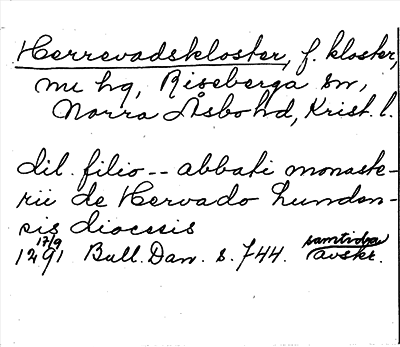 Herrevadskloster, f. kloster,
nu hg, Riseberga sn,
Norra Åsbo hd, Krist. l.
dil. filio -- abbati monaste-
rii de Hervado Lunden-
sis diocesis
17/9
1291 Bull. Dan. s. 744. samtida avskr.